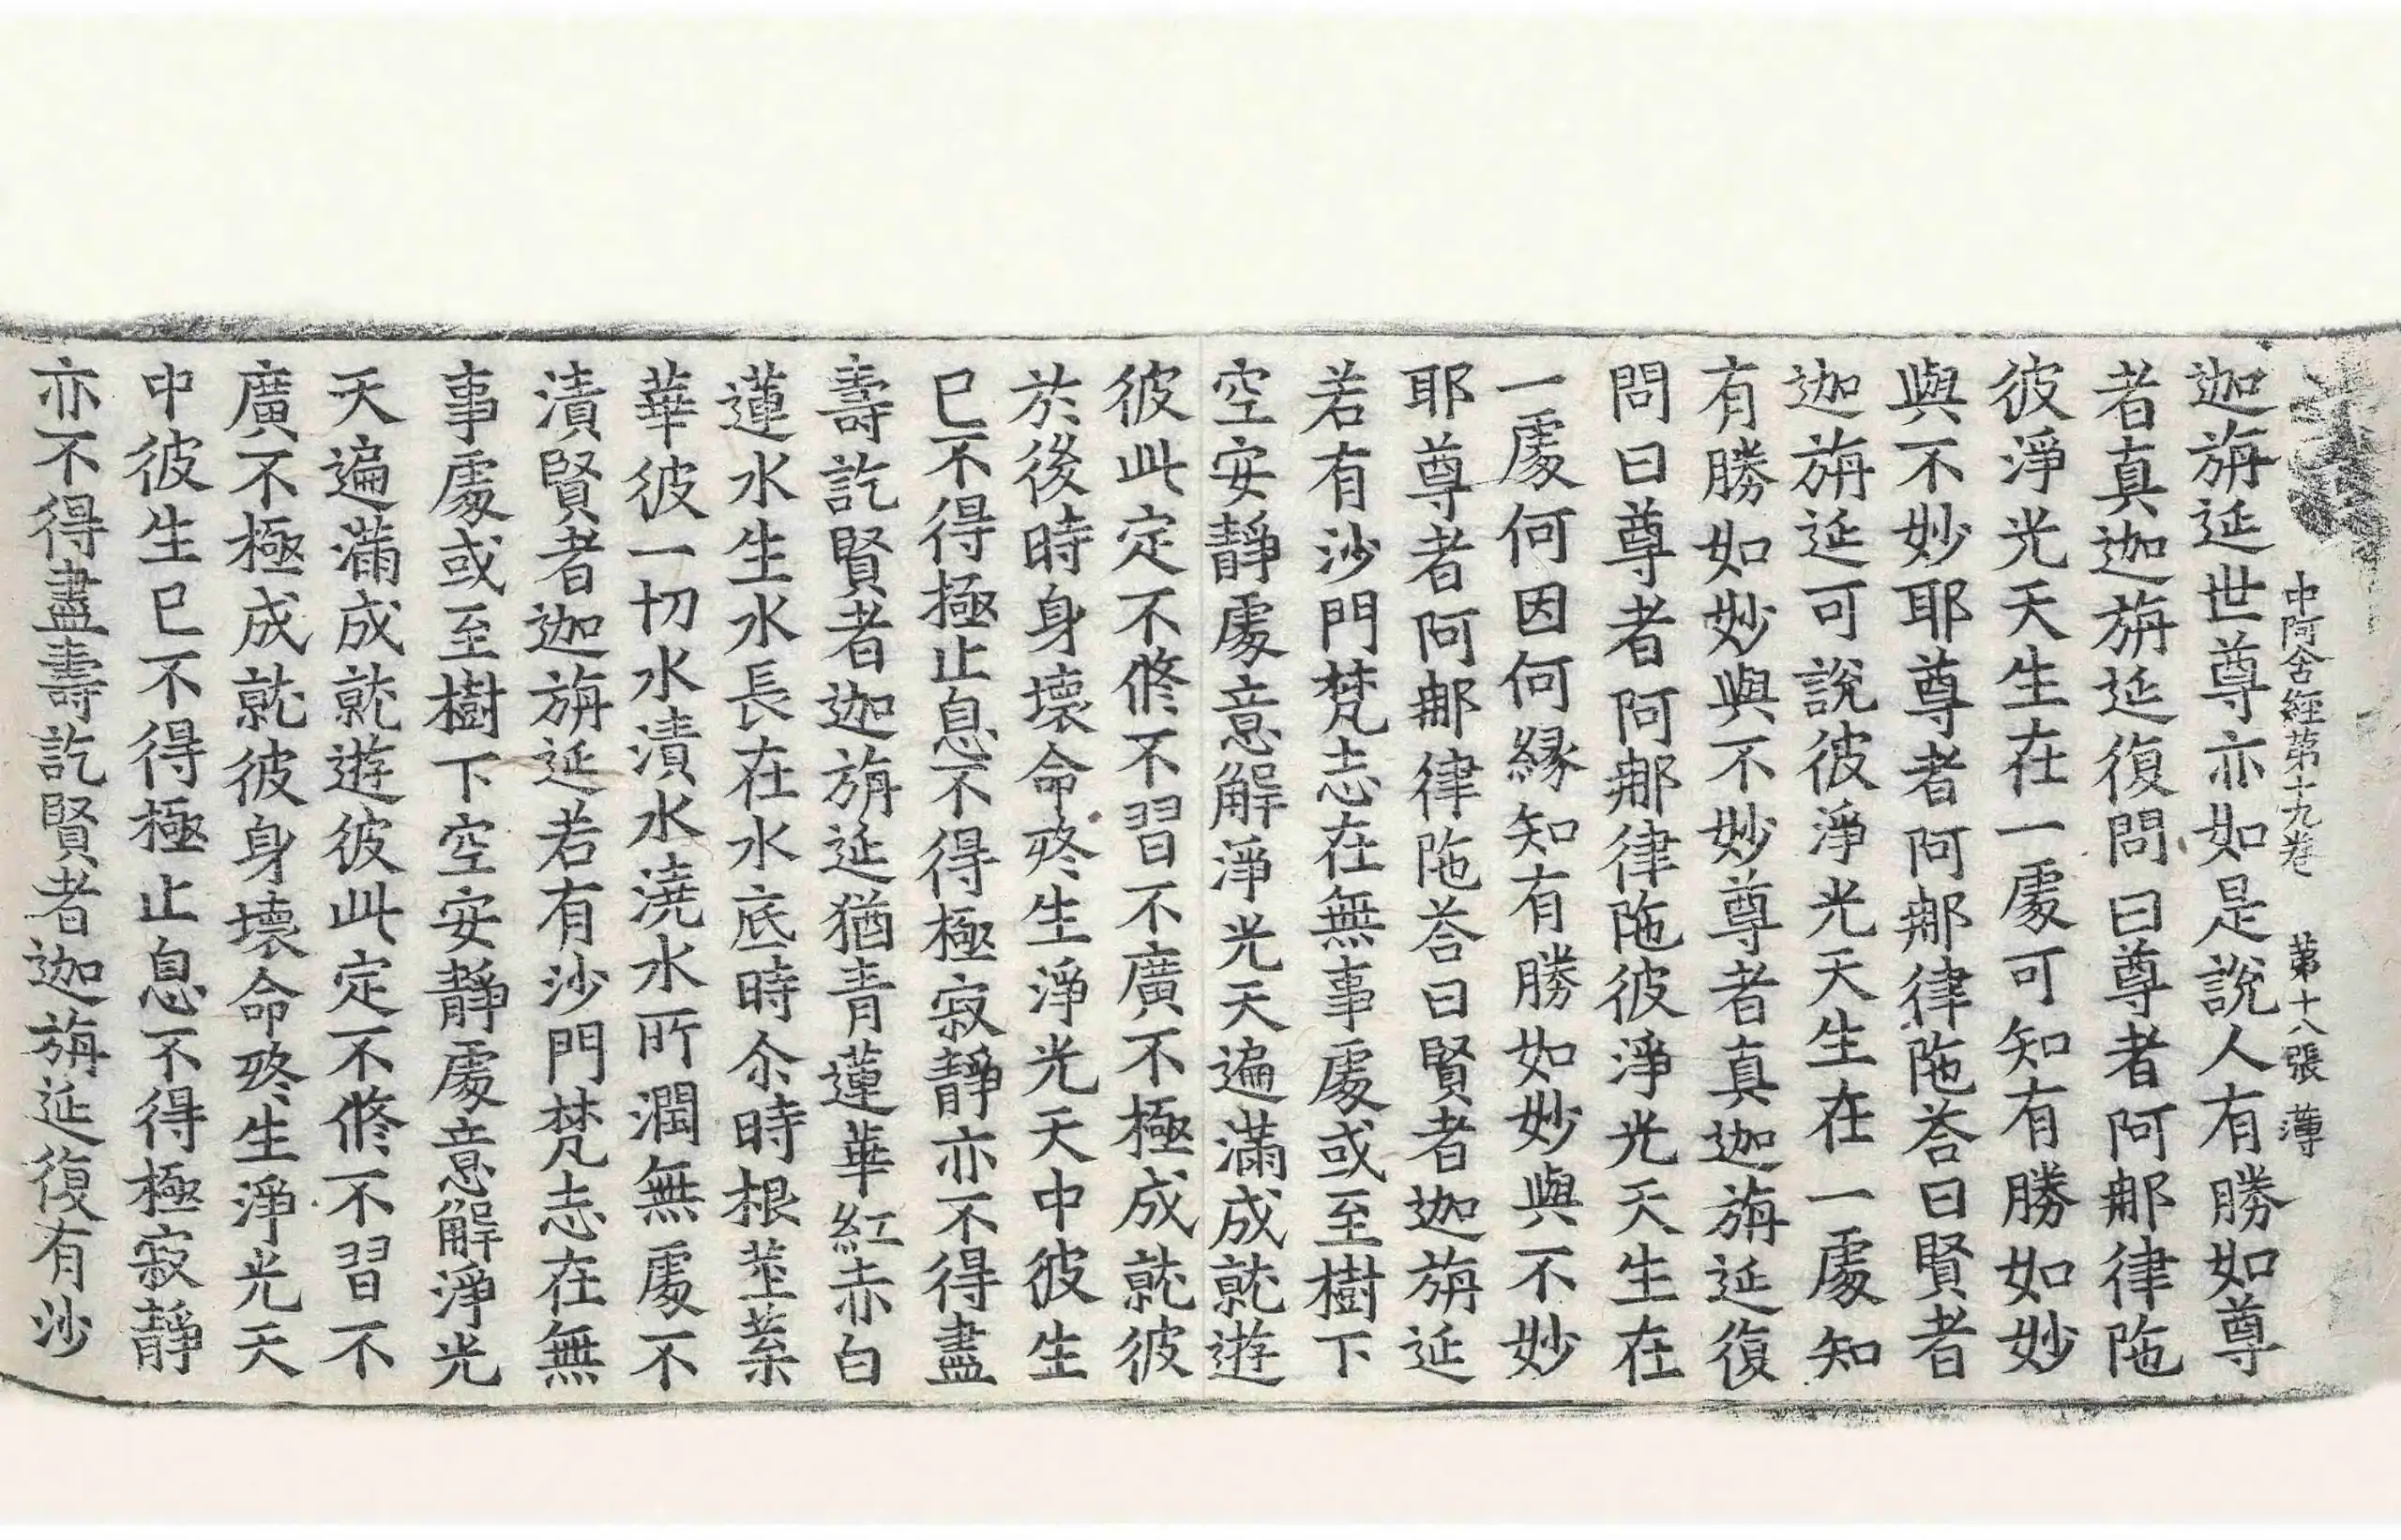 中阿含經第十九卷 第十八張 薄
迦旃延世尊亦如是說人有勝如尊
者真迦旃延復問曰尊者阿那律陁
彼淨光天生在一處可知有勝如妙
與不妙耶尊者阿那律陁荅曰賢者
迦旃延可說彼淨光天生在一處知
有勝如妙與不妙尊者真迦旃延復
問曰尊者阿那律陁彼淨光天生在
一處何因何緣知有勝如妙與不妙
耶尊者阿那律陁荅曰賢者迦旃延
若有沙門梵志在無事處或至樹下
空安靜處意解淨光天遍滿成就遊
彼此定不修不習不廣不極成就彼
於後時身壞命終生淨光天中彼生
已不得極止息不得極寂靜亦不得盡
壽訖賢者迦旃延猶青蓮華紅赤白
蓮水生水長在水底時尒時根莖葉
華彼一切水漬水澆水所潤無處不
漬賢者迦旃延若有沙門梵志在無
事處或至樹下空安靜處意解淨光
天遍滿成就遊彼此定不修不習不
廣不極成就彼身壞命終生淨光天
中彼生已不得極止息不得極寂靜
亦不得盡壽訖賢者迦旃延復有沙